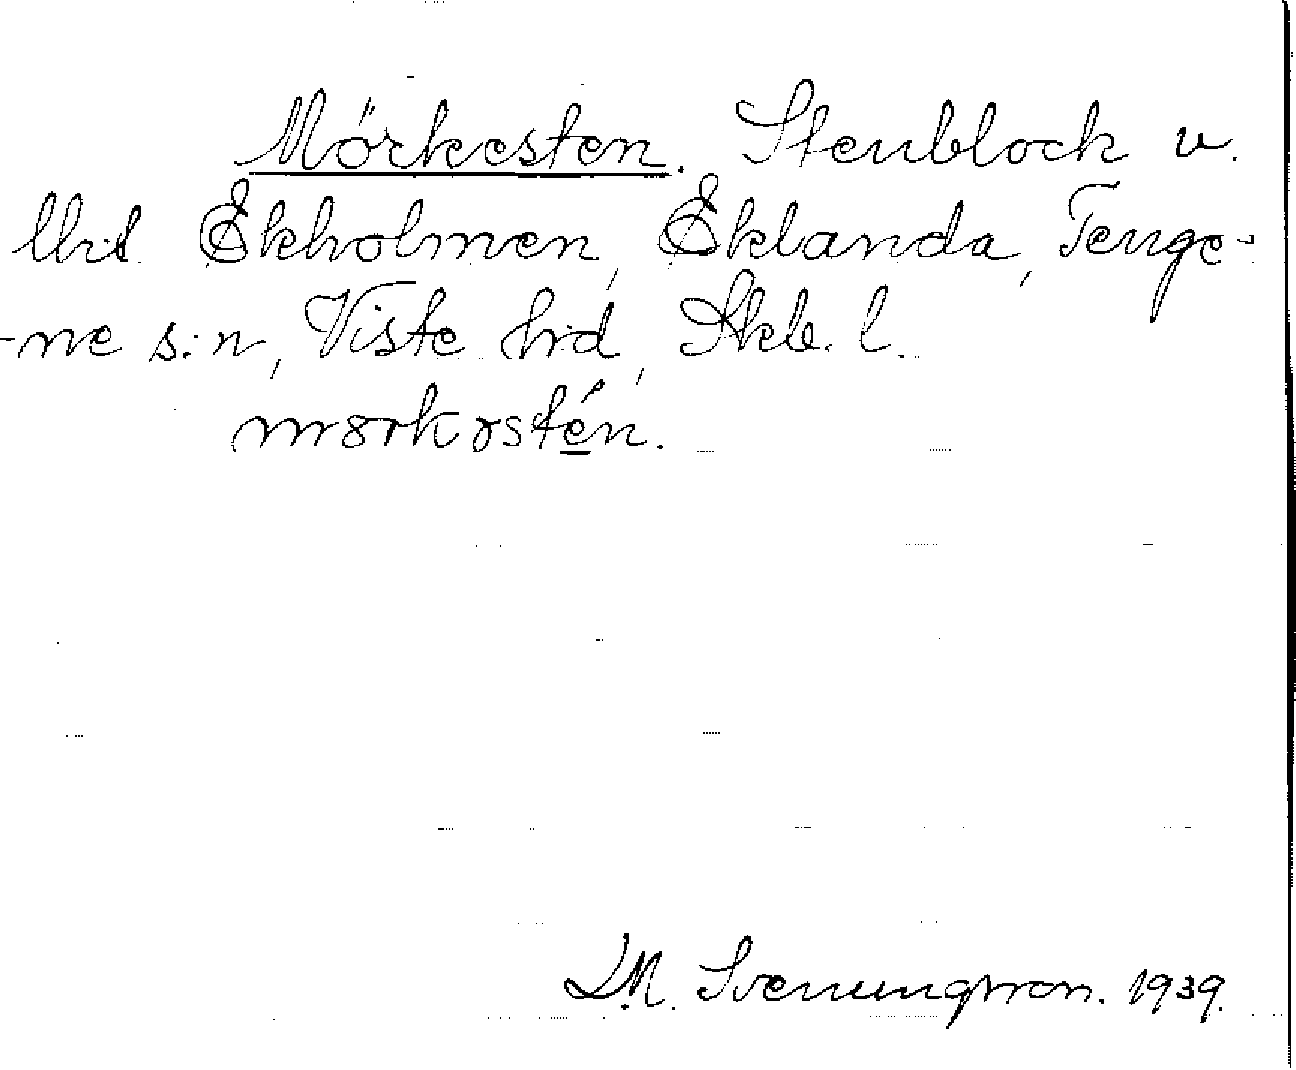 Mörkesten. Stenblock v.
Ekholmen, Eklanda, Tenge-
-ne s:n, Viste hd, Skb. l.
mörkəstén.
L.M. Svenungsson. 1939.